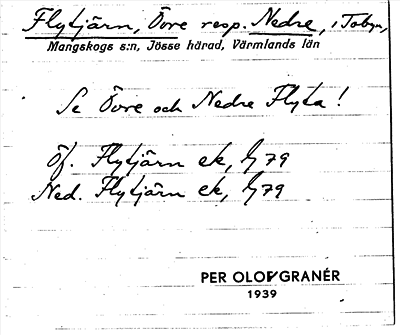 Flytjärn, Övre resp. Nedre, i Tobyn,
Mangskogs s:n, Jösse härad, Värmlands län
Se Övre och Nedre Flyta!
Öf. Flytjärn ek, G79
Ned. Flytjärn ek, G79
PER OLOF GRANÉR
1939